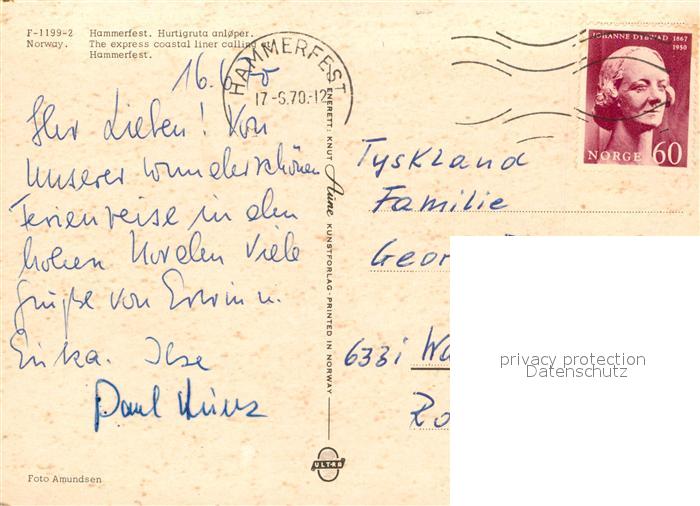 F-1199-2 Hammerfest. Hurtigruta anløper.
Norway. The express coastal liner calling at
Hammerfest.
HAMMERFEST
17-6.70.-12
JOHANNE DYBWAD 1867
1950
NORGE 60
16.6.70
Ihr Lieben! Von
unserer wunderschönen
Ferienreise in den
hohen Norden viele
Grüße von Erwin u.
Erika. Ilse
Paul
ENERETT: KNUT Aune KUNSTFORLAG - PRINTED IN NORWAY
Tyskland
Familie
Geor
6331 Wa
Ro
privacy protection
Datenschutz
ULTRA
Foto Amundsen